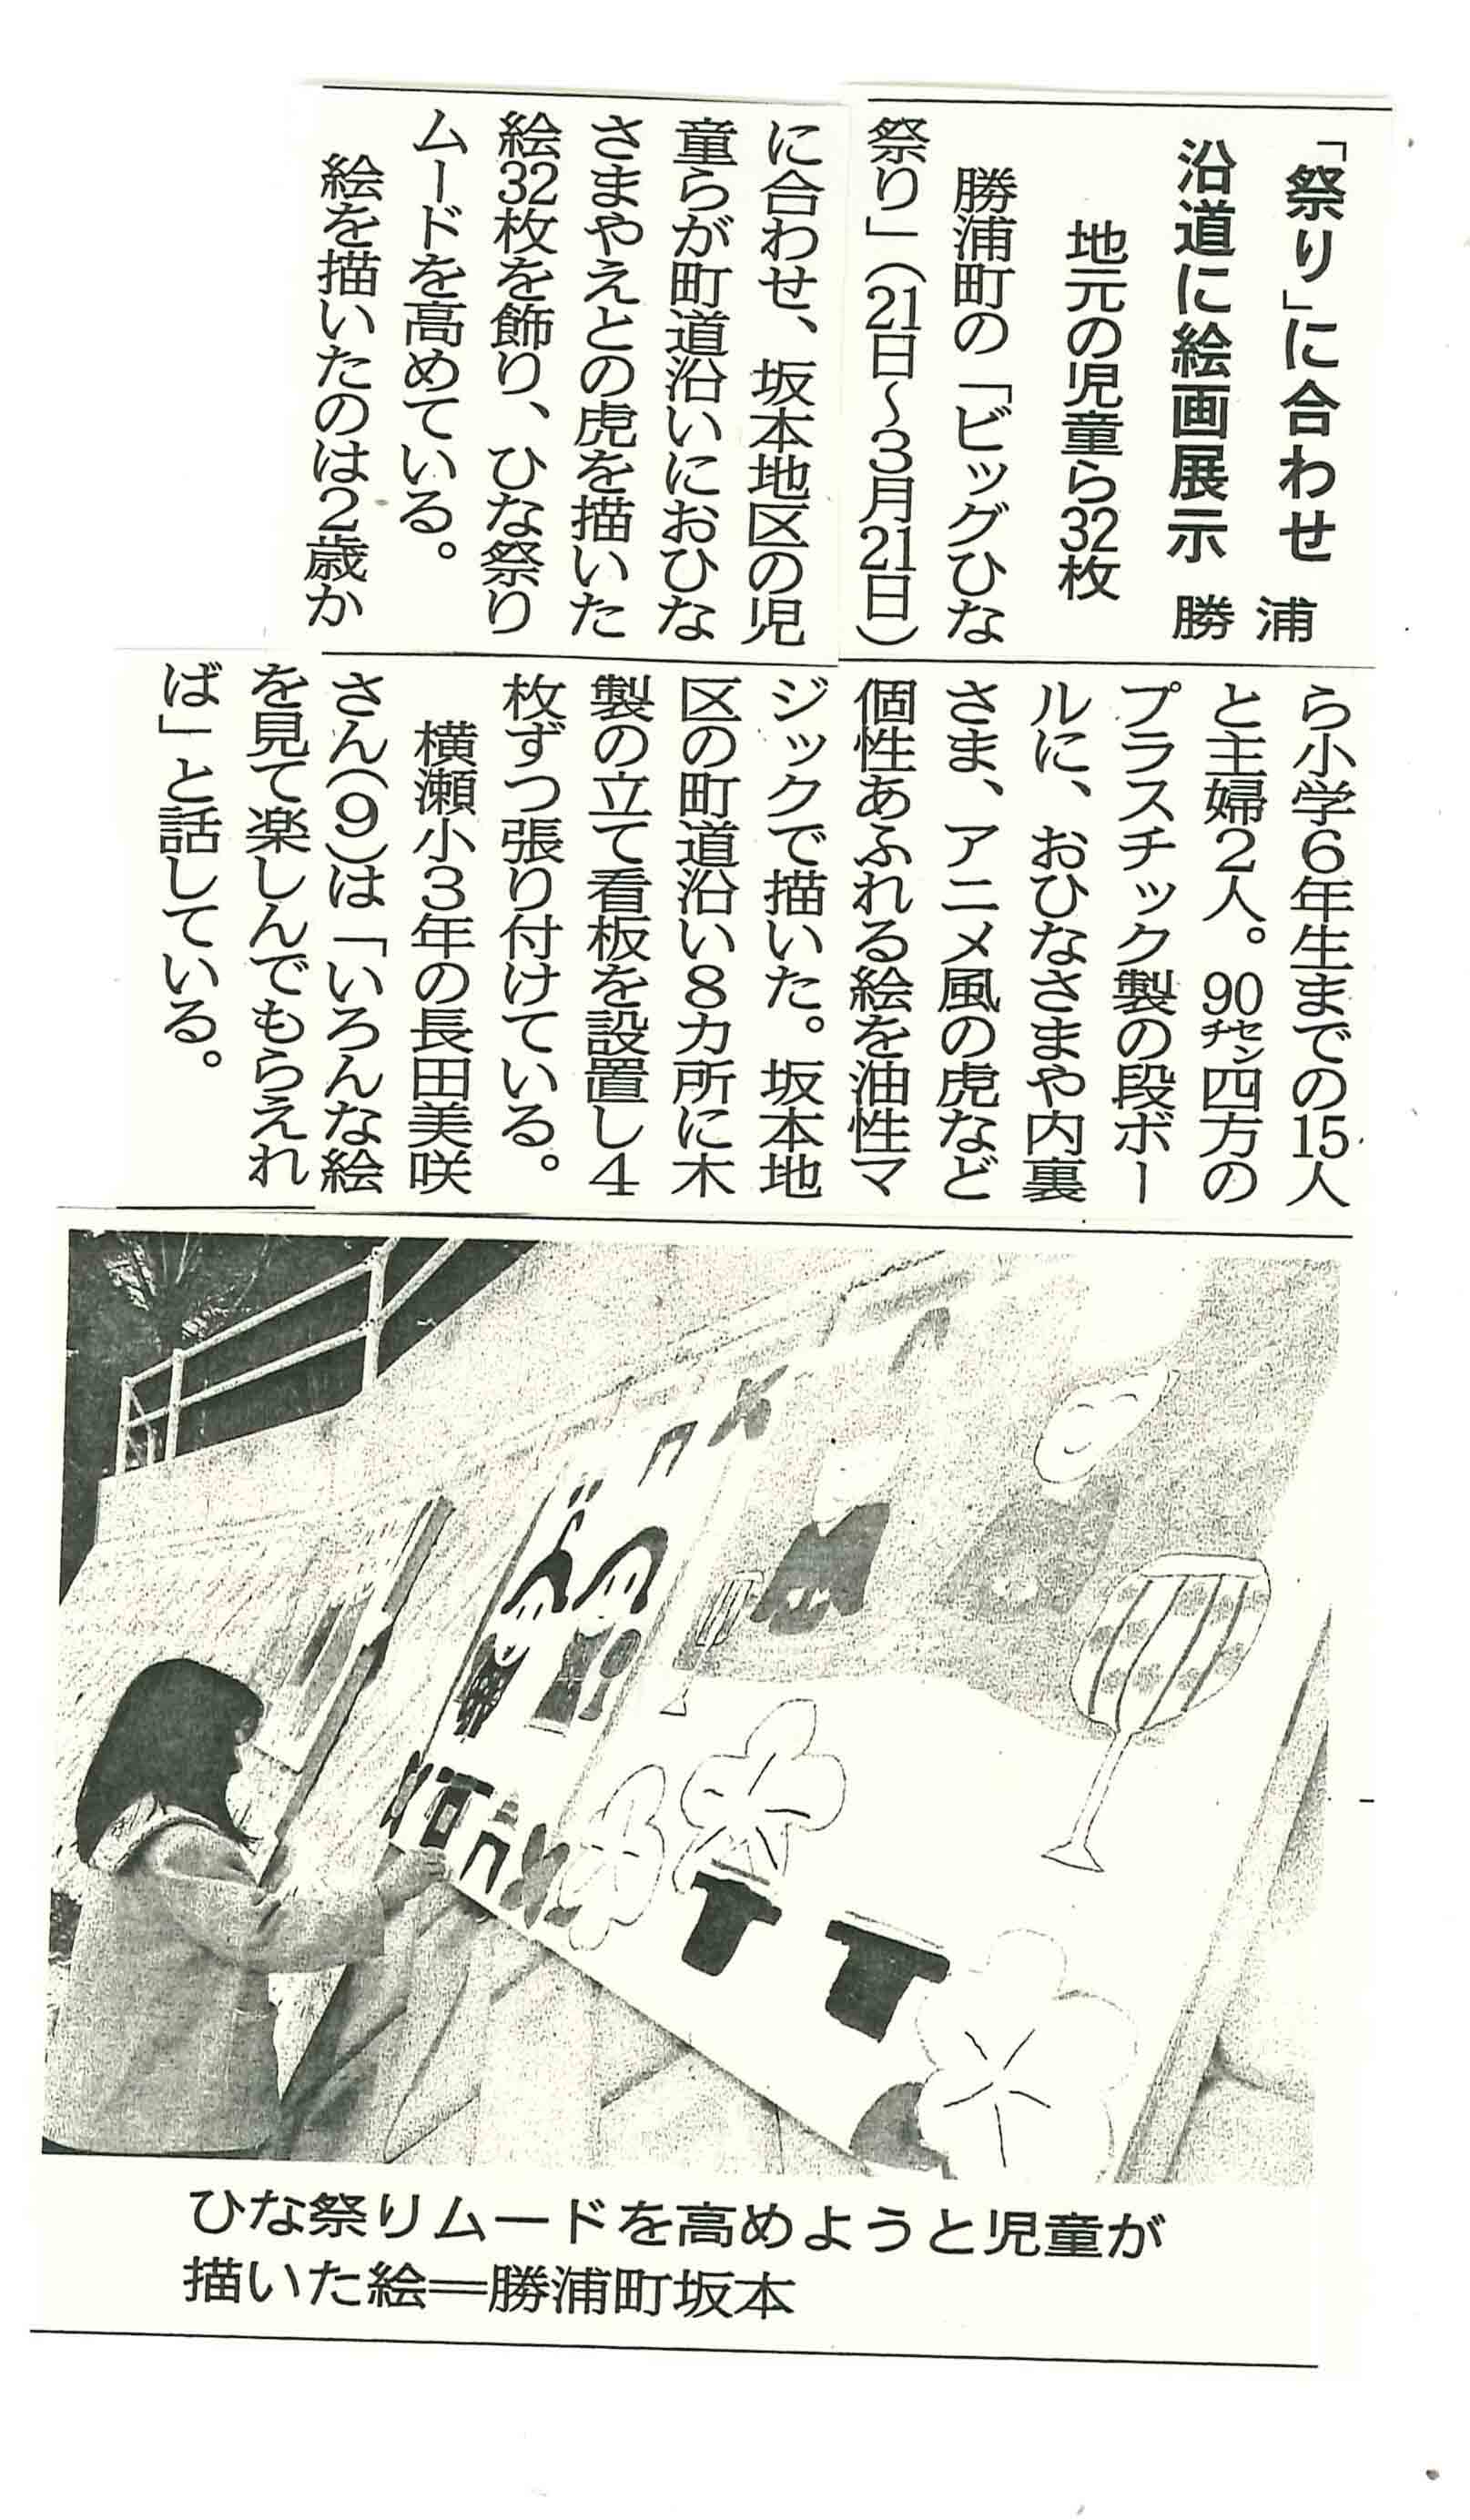 「祭り」に合わせ
沿道に絵画展示
勝浦
地元の児童ら32枚
勝浦町の「ビッグひな
祭り」(21日～3月21日)
に合わせ、坂本地区の児
童らが町道沿いにおひな
さまやえとの虎を描いた
絵32枚を飾り、ひな祭り
ムードを高めている。
絵を描いたのは2歳か
ら小学6年生までの15人
と主婦2人。90㌢四方の
プラスチック製の段ボー
ルに、おひなさまや内裏
さま、アニメ風の虎など
個性あふれる絵を油性マ
ジックで描いた。坂本地
区の町道沿い8カ所に木
製の立て看板を設置し4
枚ずつ張り付けている。
横瀬小3年の長田美咲
さん(9)は「いろんな絵
を見て楽しんでもらえれ
ば」と話している。
ひな祭りムードを高めようと児童が
描いた絵＝勝浦町坂本